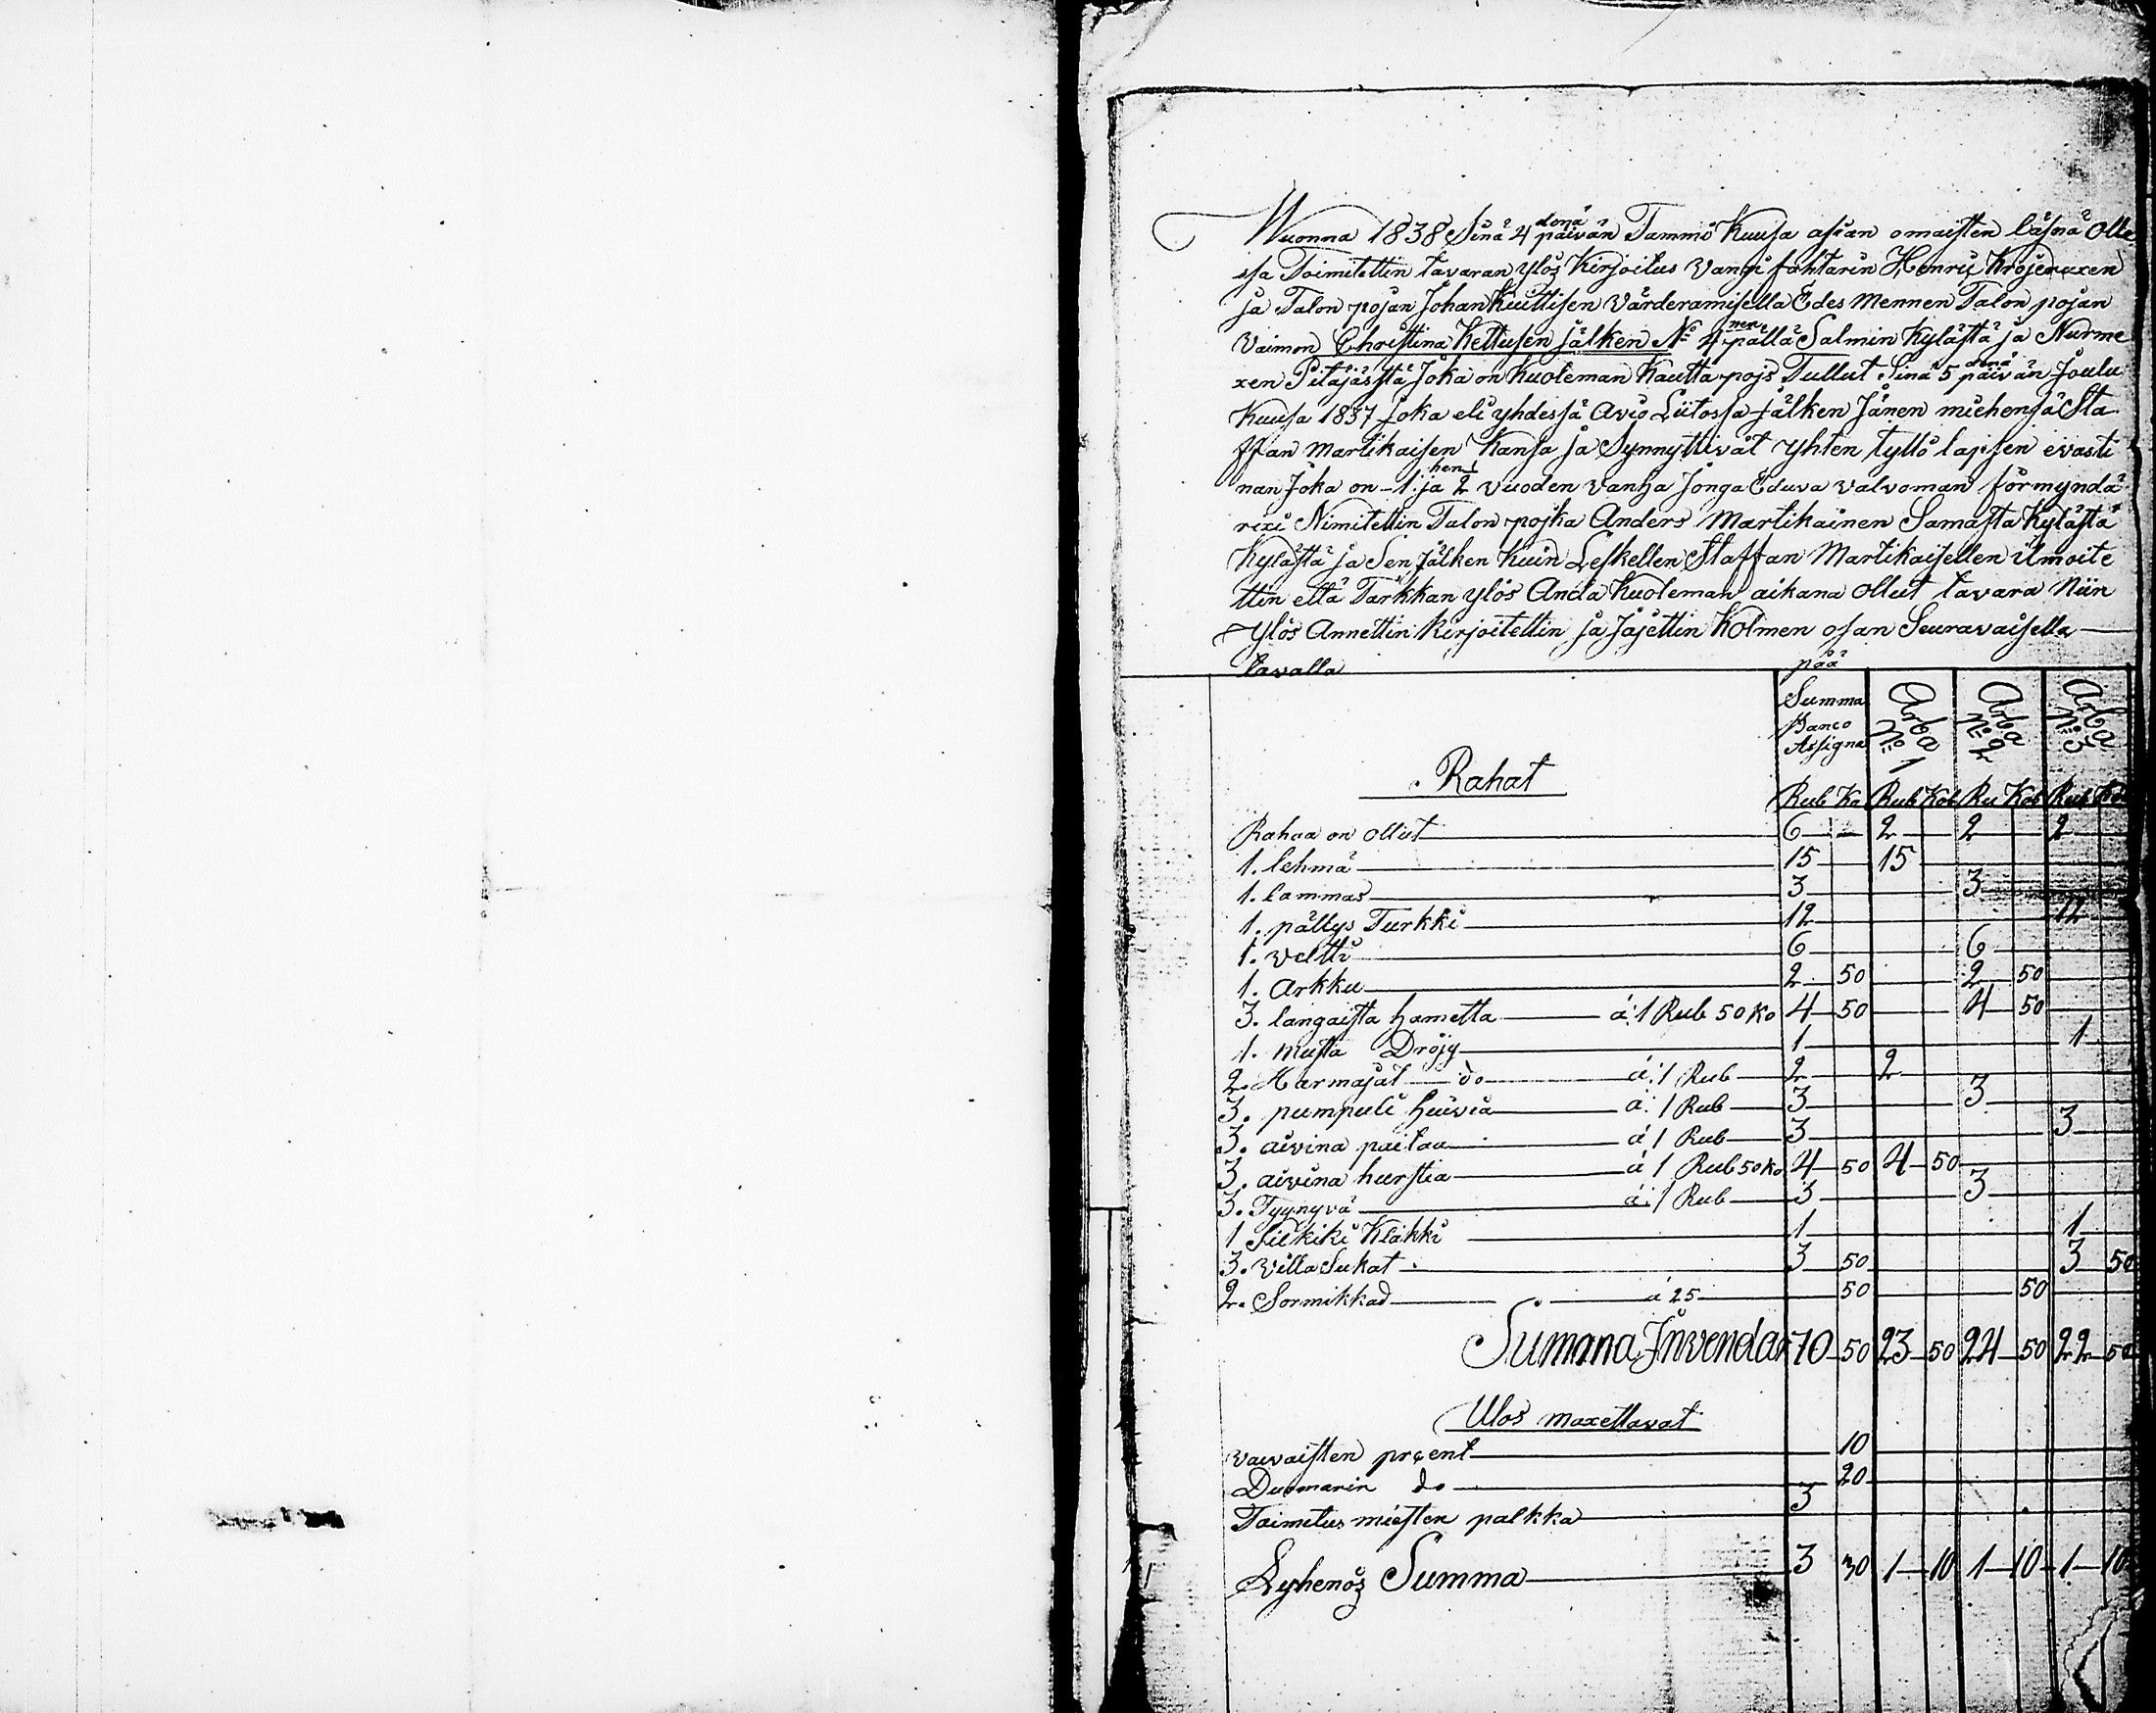 Wuonna 1838 Sinä 4 denä päivän Tammi Kuusa asian omaisten läsnä Olle
isa Toimitettin tavaran ylöz Kirjoitus Vangi fohtarin Henric Kröjeruxen
ja Talon pojan Johan Kuittisen Värderamisella Edes Mennen Talon pojan
Vaimon Christina Kettusen jälken No 4 nen pällä Salmin Kylästä ja Nurme
xen Pitäjästä Joka on Kuoleman Kautta pojs Tullut Sinä 5 denä päivän Joulu
Kuusa 1837 Joka eli yhdessä Avio Liitossa jälken Jänen miehensä Sta
ffan Martikaisen Kansa ja Synnyttivät yhten tyttö lapsen evasti
nan Joka on 1 ja 2 hen vuoden vanha Jonga Eduva valvoman förmyndä
rixi Nimitettin Talon pojka Anders Martikainen Samasta Kylästä
Kylästä ja Sen Jälken Kuin Leskellen Staffan Martikaisellen ilmoite
ttin että Tarkkan ylös Anda Kuoleman aikana ollut tavara Niin
Ylös Annettin Kirjoitettin ja Jajettin Kolmen osan Seuravaisella
tavalla
pää Summa Banco Assigna Arba No 1 Arba No 2 Arba No 3
Rahat
Rub Ko Rub Kob Ru Kob Rub Kob
Rahaa on ollut 6 - 2 2 2
1. lehmä 15 15
1. lammas 3 3
1. pällys Turkki 12 12
1. veltti 6 6
1. Arkku 2 50 2 50
3. langaista hametta á 1 Rub 50 Ko 4 50 4 50
1. musta Dröjy 1 1
2. Harmajat do á 1 Rub 2 2
3. pumpuli huivia á 1 Rub 3 3
3. aivina paitaa á 1 Rub 3 3
3. aivina hurstia á 1 Rub 50 Ko 4 50 4 50
3. Tyynyvä á 1 Rub 3 3
1 Silkiki Klakki 1 1
3. villa Sukat 3 50 3 50
2. Sormikkad á 25 50 50
Summa Invendar 70 50 23 50 24 50 22 50
Ulos maxettavat
vaivaisten prcent 10
Duomarin do 20
Toimitus miesten palkka 3
Lyhenöz Summa 3 30 1 10 1 10 1 10